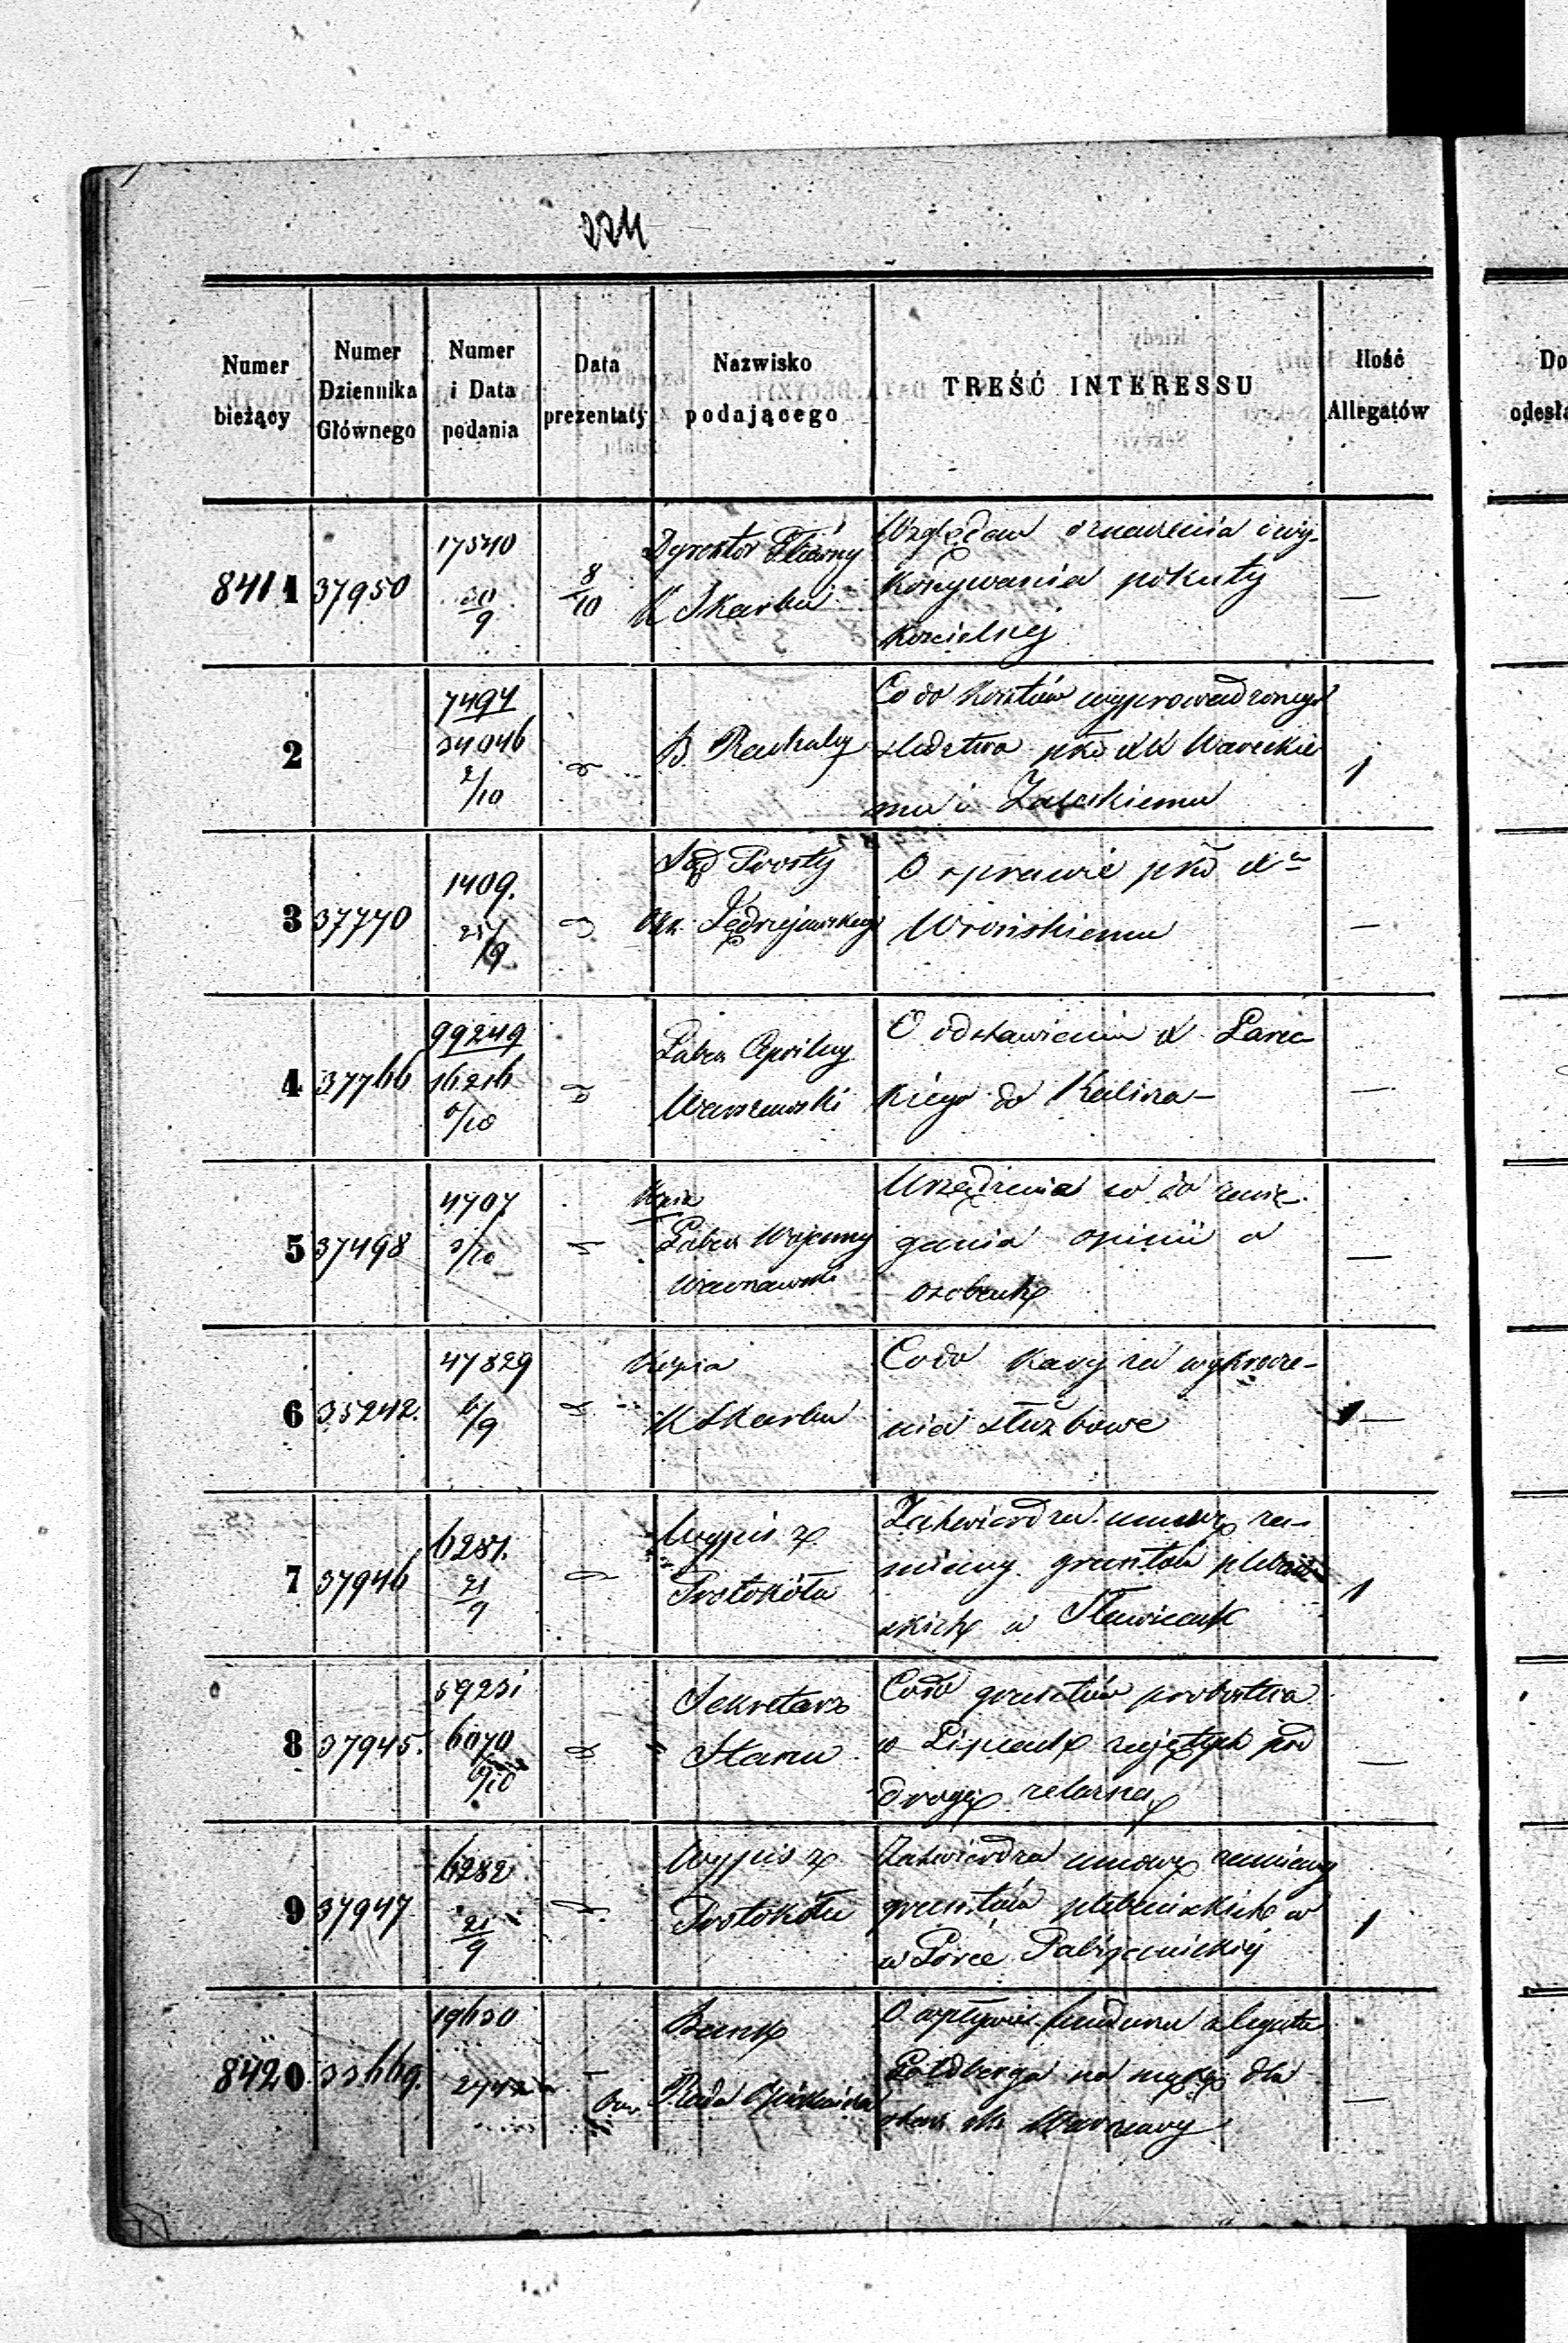 224
Numer bieżący
Numer Dziennika Głównego
Numer i Data podania
Data prezentaty
Nazwisko podającego
TREŚĆ INTERESSU
Ilość Allegatów
8411 37950 17540 9 8/10 Dyrektor Główny
K Skarbu
Względem oznaczenia i wy-
konywania pokuty
kościelnej —
2 7494
34046
2/10
B.
Co do kosztów wyprowadzonego
śledztwa pko XX Wareckie
mu i Zaleskiemu 1
3 37770 1409.
/9
Sąd Prosty
Okr. Jędrzejowskiego
O sprawie pko Xu
Wrońskiemu —
4 37766 99249
16216
/10
Guber Cywilny
Warszawski
O odstawieniu X.
kiego do Kalisza —
5 37498 4707
/10
Kopia
Guber Wojenny
Warszawski
Urządzenia co do zasię-
gania opinii o
osobach —
6 35242. 47829
6/9
Kopia
K Skarbu
Co do kary za wykrocze-
nia służbowe —
7 37946 6281.
21/9
Wypis z
Protokółu
Zatwierdza umowę za-
miany gruntów plebań-
skich w 1
8 37945. 59231
6070
6/10
Sekretarz
Stanu
Co do gruntów probostwa
w Lipcach zajętych pod
drogę żelazną —
9 37947 6282
21/9
Wypis z
Protokółu
Zatwierdza umowę zamiany
gruntów plebańskich w
w Górce Pabijanickiej 1
8420 33669. 19630
Bank
Rada Opiekuńcza
O wpływie funduszu z legatu
Goldberga na dla
M. Warszawy —